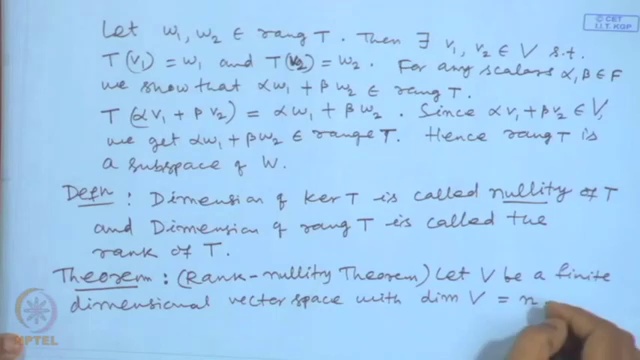 © CET
I.I.T. KGP
Let w₁, w₂ ∈ rang T. Then ∃ v₁, v₂ ∈ V s.t.
T(v₁) = w₁ and T(v₂) = w₂. For any scalars α, β ∈ F
we show that αw₁ + βw₂ ∈ rang T.
T(αv₁ + βv₂) = αw₁ + βw₂. Since αv₁ + βv₂ ∈ V,
we get αw₁ + βw₂ ∈ range T. Hence rang T is
a subspace of W.
Defn: Dimension of ker T is called nullity of T
and Dimension of rang T is called the
rank of T.
Theorem: (Rank-nullity Theorem) Let V be a finite
dimensional vector space with dim V = n
NPTEL